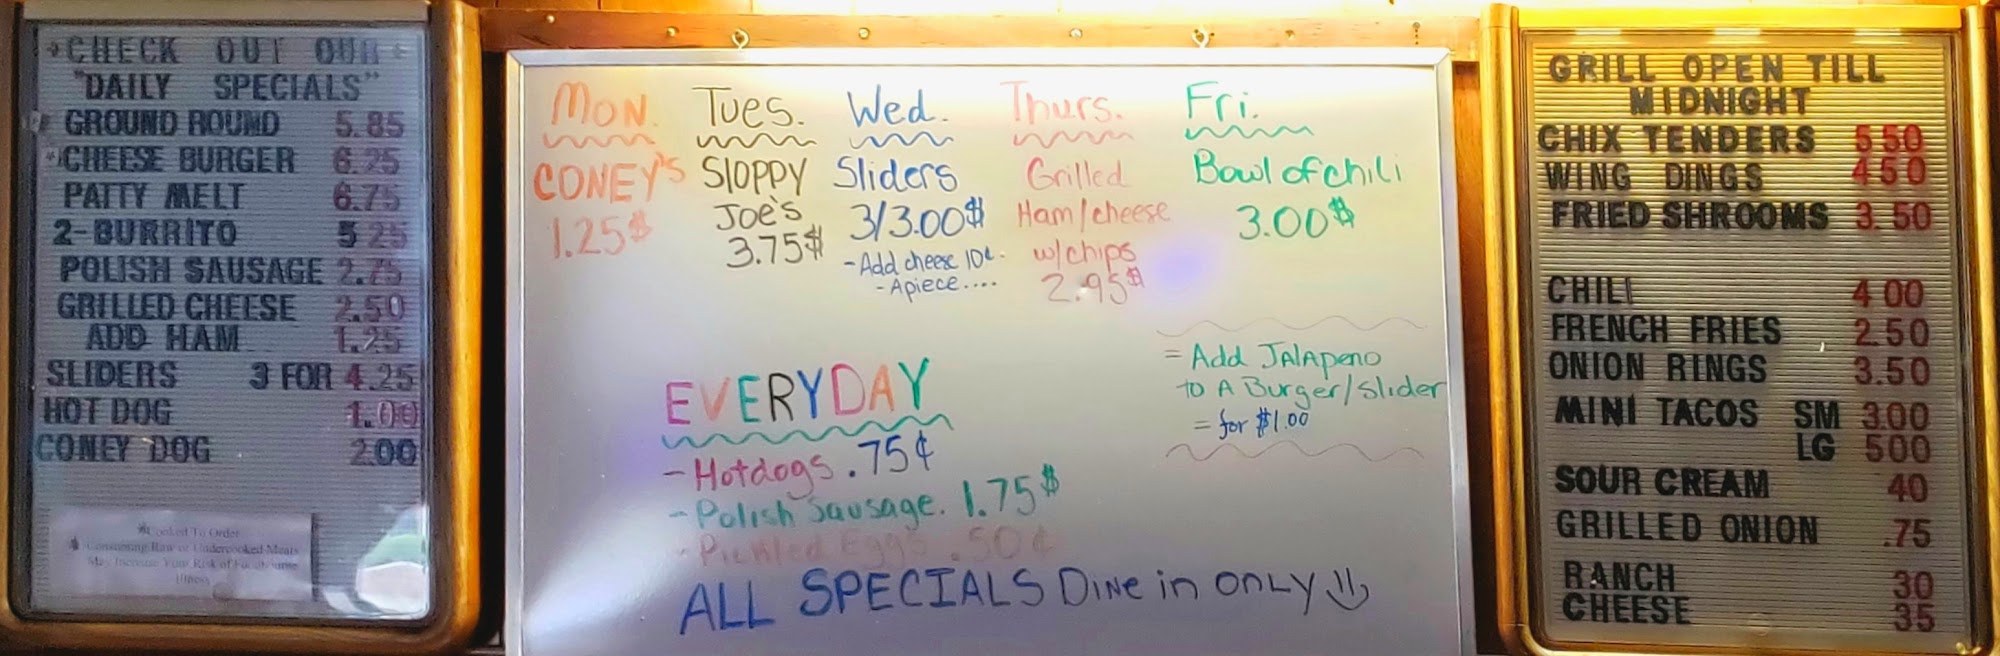 CHECK OUT OUR
"DAILY SPECIALS"
GROUND ROUND 5.85
*CHEESE BURGER 6.25
PATTY MELT 6.75
2-BURRITO 5 25
POLISH SAUSAGE 2.75
GRILLED CHEESE 2.50
ADD HAM 1.25
SLIDERS 3 FOR 4.25
HOT DOG 1.00
CONEY DOG 2.00
*Cooked To Order
Consuming Raw or Undercooked Meats
May Increase Your Risk of Foodborne
Illness
Mon.
CONEY'S
1.25$
Tues.
SlOPPY
JOE'S
3.75$
Wed.
Sliders
3/3.00$
-Add cheese 10¢.
-Apiece....
Thurs.
Grilled
Ham/cheese
w/chips
2.95$
Fri.
Bowl of chili
3.00$
= Add JAlapeno
to A Burger/slider
= for $1.00
EVERYDAY
-Hotdogs .75¢
-Polish Sausage. 1.75$
-Pickled Eggs .50¢
ALL SPECIALS Dine in ONLY
GRILL OPEN TILL
MIDNIGHT
CHIX TENDERS 5 50
WING DINGS 4 50
FRIED SHROOMS 3.50
CHILI 4 00
FRENCH FRIES 2.50
ONION RINGS 3.50
MINI TACOS SM 3.00
LG 500
SOUR CREAM 40
GRILLED ONION .75
RANCH 30
CHEESE 35